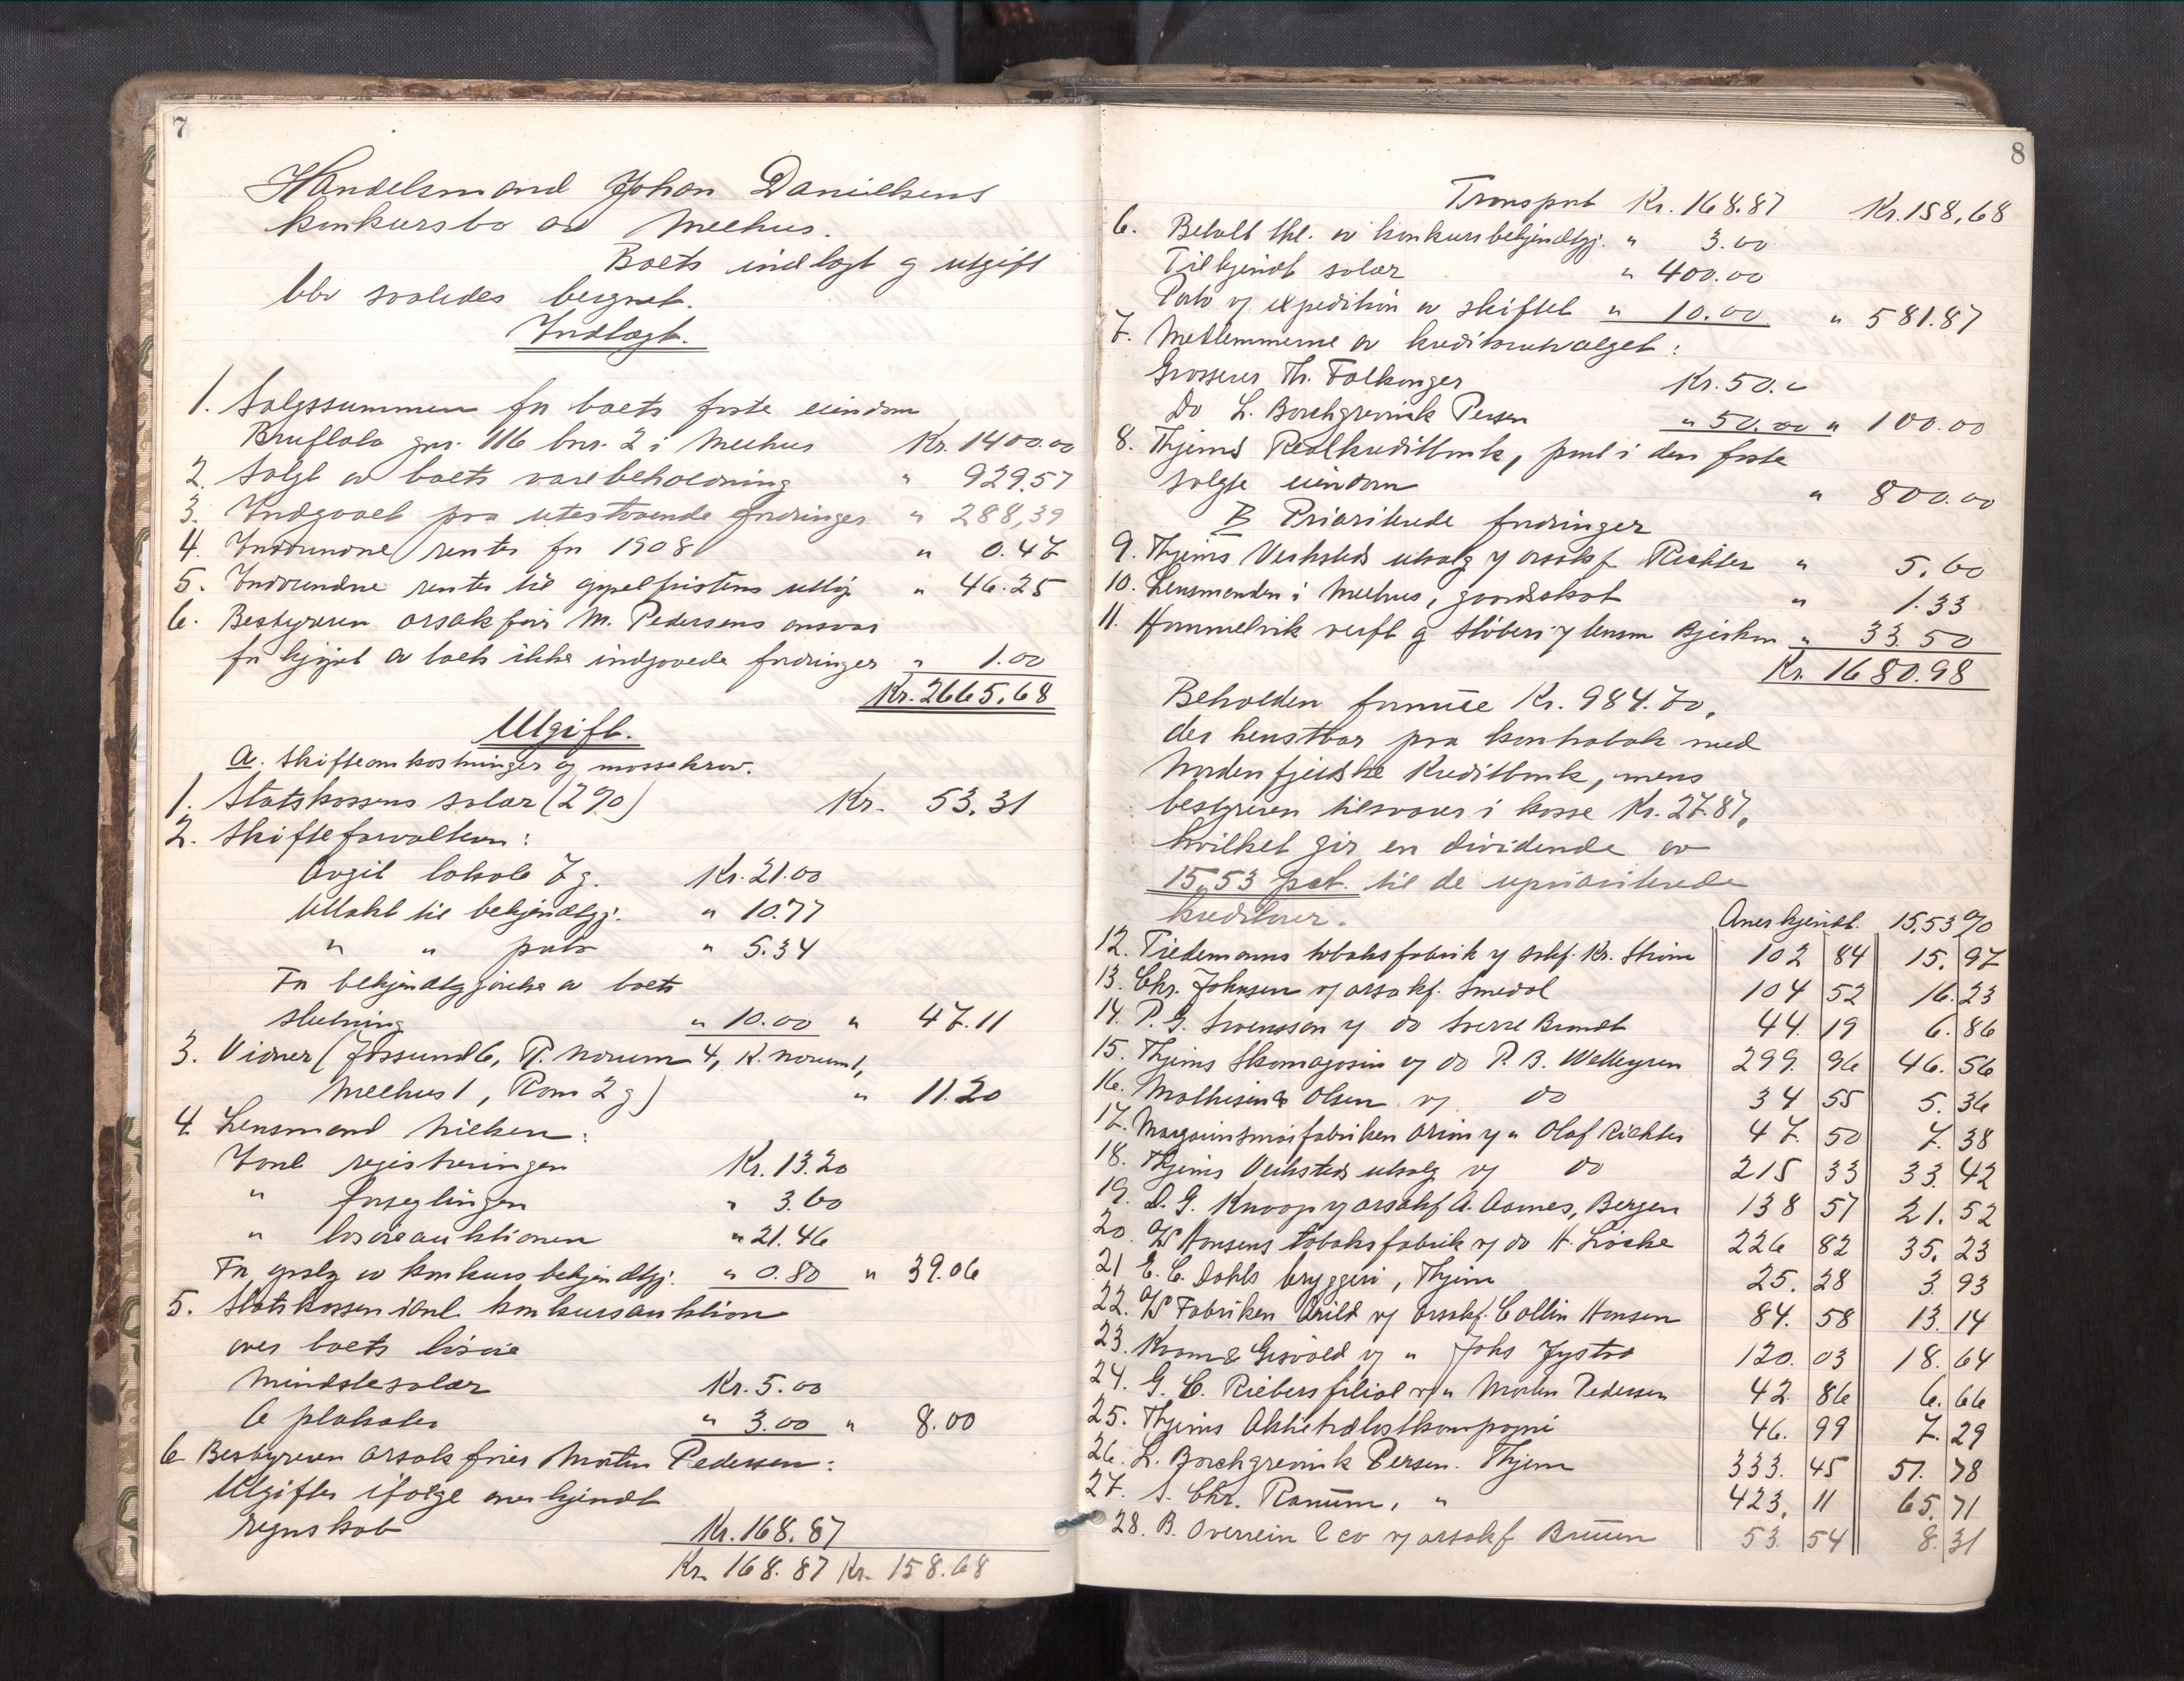 7
Handelsmand Johan Danielsens
konkursbo av Meehus.
Boets indtægt og utgift
blir saaledes beregnet.
Indtægt.
1. Salgssummen for boets faste eiendom
Bruflata gnr. 116 bnr. 2 i Meehus Kr. 1400.00
2. Solgt av boets varebeholdning " 929.57
3. Indgaaet paa utestaaende fordringer " 288,39
4. Indvundne renter for 1908 " 0.47
5. Indvundne renter til appelfristens utløp " 46.25
6. Bestyreren orsakfører M. Pedersens ansvar
for kjøpet av boets ikke indgaaede fordringer " 1.00
Kr. 2665,68
Utgift.
A. Skifteomkostninger og massekrav.
1. Statskassens salær (2%) Kr. 53.31
2. Skifteforvalteren:
Avgit lokale 7 g. Kr. 21.00
Utlakt til bekjendtgj. " 10.77
" " porto " 5.34
For bekjendtgjørelse av boets
slutning " 10.00 " 47.11
3. Vidner (Jøssund 6, P. Norum 4, K. Norum 1,
Meehus 1, Rom 2 g) " 11.20
4. Lensmand Nielsen:
Ianl registreringen Kr. 13.20
" forseglingen " 3.60
" løsøreauktionen " 21.46
For opslag av konkursbekjendtgj. " 0.80 " 39.06
5. Statskassen i anl. konkursauktion
over boets løsøre
Mindstesalær Kr. 5.00
6 plakater " 3.00 " 8.00
6 Bestyreren orsakfører Morten Pedersen:
Utgifter ifølge anerkjendt
regnskab Kr. 168.87
Kr. 168.87 Kr. 158.68
8
Transport Kr. 168.87 Kr. 158,68
6. Betalt tlf. av konkursbekjendtgj. " 3.00
Tilkjendt salær " 400.00
Porto og expedition av skiftet " 10.00 " 581.87
7. Medlemmerne av kreditorutvalget:
Grosserer Th. Falkanger Kr. 50.
Do L. Borchgrevink Persen " 50.00 " 100.00
8. Thjems Realkreditbank, pant i den faste
solgte eiendom " 800.00
B Prioriterede fordringer
9. Thjems Verksteds utsalg v/ orsakf. Richter " 5.60
10. Lensmanden i Meehus, gaardsskat " 1.33
11. Hommelvik verft og støberi v/ lensm Bjerkan " 33.50
Kr. 1680.98
Beholden formue Kr. 984.70,
der henstaar paa kontrabok med
Nordenfjeldske Kreditbank, mens
bestyreren tilsvarer i kasse Kr. 27.87,
hvilket gir en dividende av
15,53 pct. til de uprioriterede
kreditorer. Anerkjendt. 15,53 %
12. Tiedemanns tobaksfabrik v/ sakf. Kr. Strøm 102 84 15. 97
13. Chr. Johnsen v/ orsakf. Smedal 104 52 16. 23
14. P. G. Svensson v/ do Sverre Brandt 44. 19 6. 86
15. Thjems Skomagasin v/ do P. B. Wettergren 299. 96 46. 56
16. Mathisen & Olsen v/ do 34 55 5. 36
17. Margarinsmørfabriken Orion v/ " Olaf Richter 47. 50 7. 38
18. Thjems Verksteds utsalg v/ do 215 33 33. 42
19. D. G. Knoop v/ orsakf A. Aarnes, Bergen 138 57 21. 52
20. A/S Hansens tobaksfabrik v/ do H. Løcke 226 82 35. 23
21 E. C. Dahls bryggeri, Thjem 25. 28 3. 93
22. A/S Fabriken Arild v/ orsakf. Collin Hansen 84. 58 13. 14
23. Kvam & Gisvold v/ " Johs Jystad 120. 03 18. 64
24. G. C. Riebers filial v/ " Morten Pedersen 42. 86 6. 66
25. Thjems Aktietrælastkompagni 46. 99 7. 29
26. L. Borchgrevink Persen. Thjem 333. 45 51. 78
27. S. Chr. Ranum, " 423, 11 65. 71
28. B. Overrein & co v/ orsakf Bruun 53. 54 8. 31